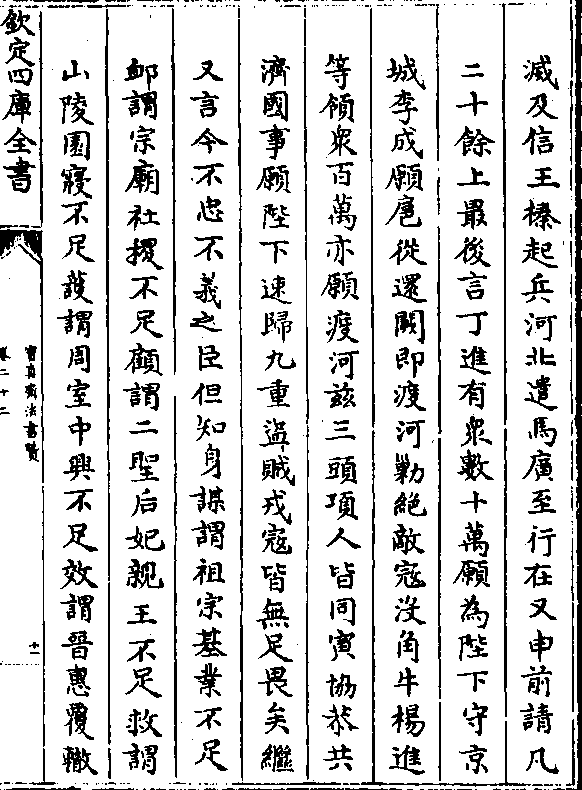 滅及信王榛起兵河北遣馬廣至行在又申前請凡
二十餘上最後言丁進有衆數十萬願為陛下守京
城李成願扈從還闕即渡河勦絕敵寇沒角牛楊進
等領衆百萬亦願渡河茲三頭項人皆同寅協恭共
濟國事願陛下速歸九重盜賊戎寇皆無足畏矣繼
又言今不忠不義之臣但知身謀謂祖宗基業不足
卹謂宗廟社稷不足顧謂二聖后妃親王不足救謂
山陵園寢不足護謂周室中興不足效謂晉惠覆轍
欽定四庫全書
寶真齋法書贊
卷二十二
十一